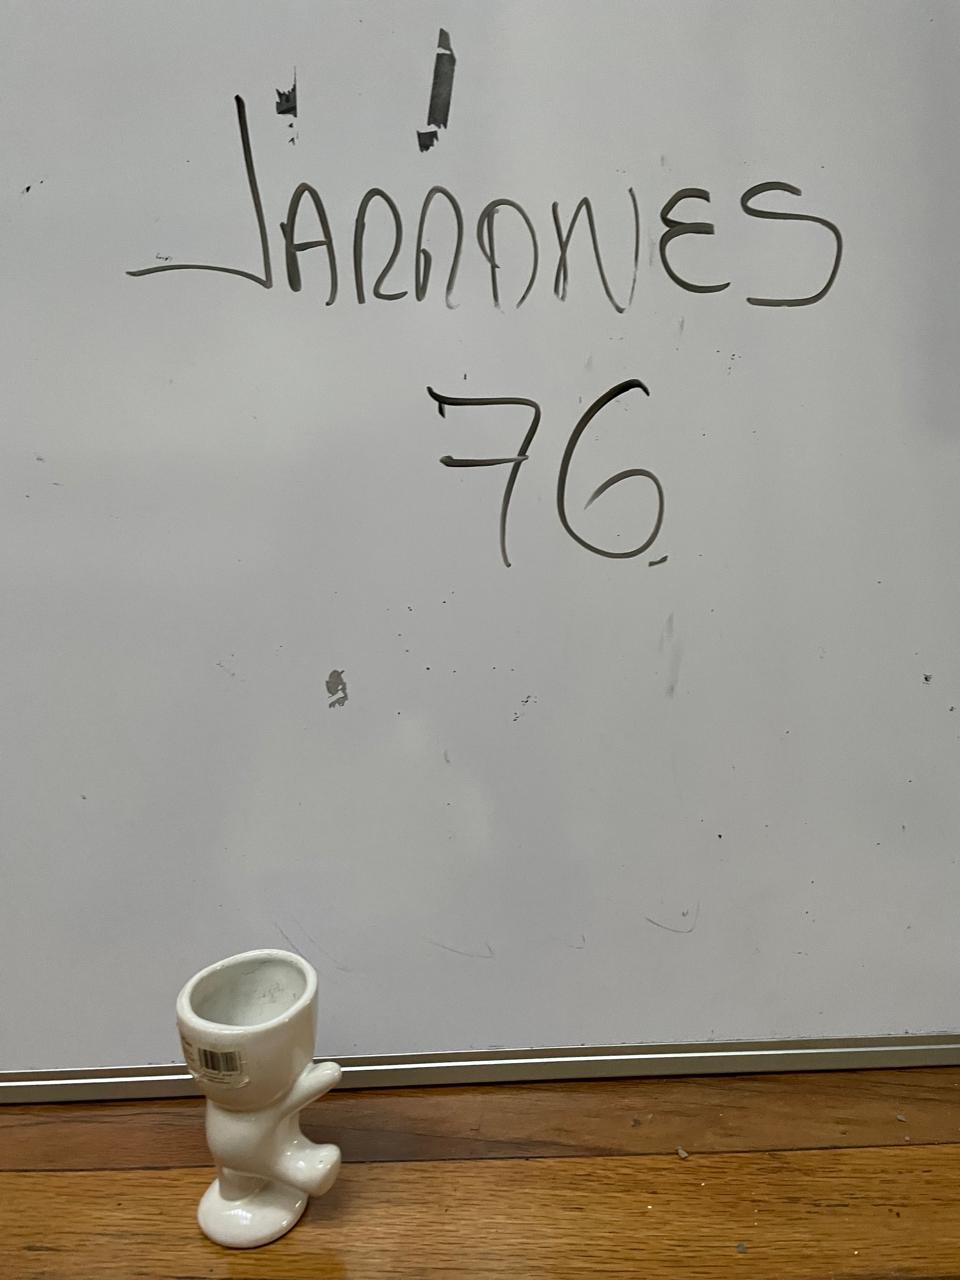 JARRONES
76